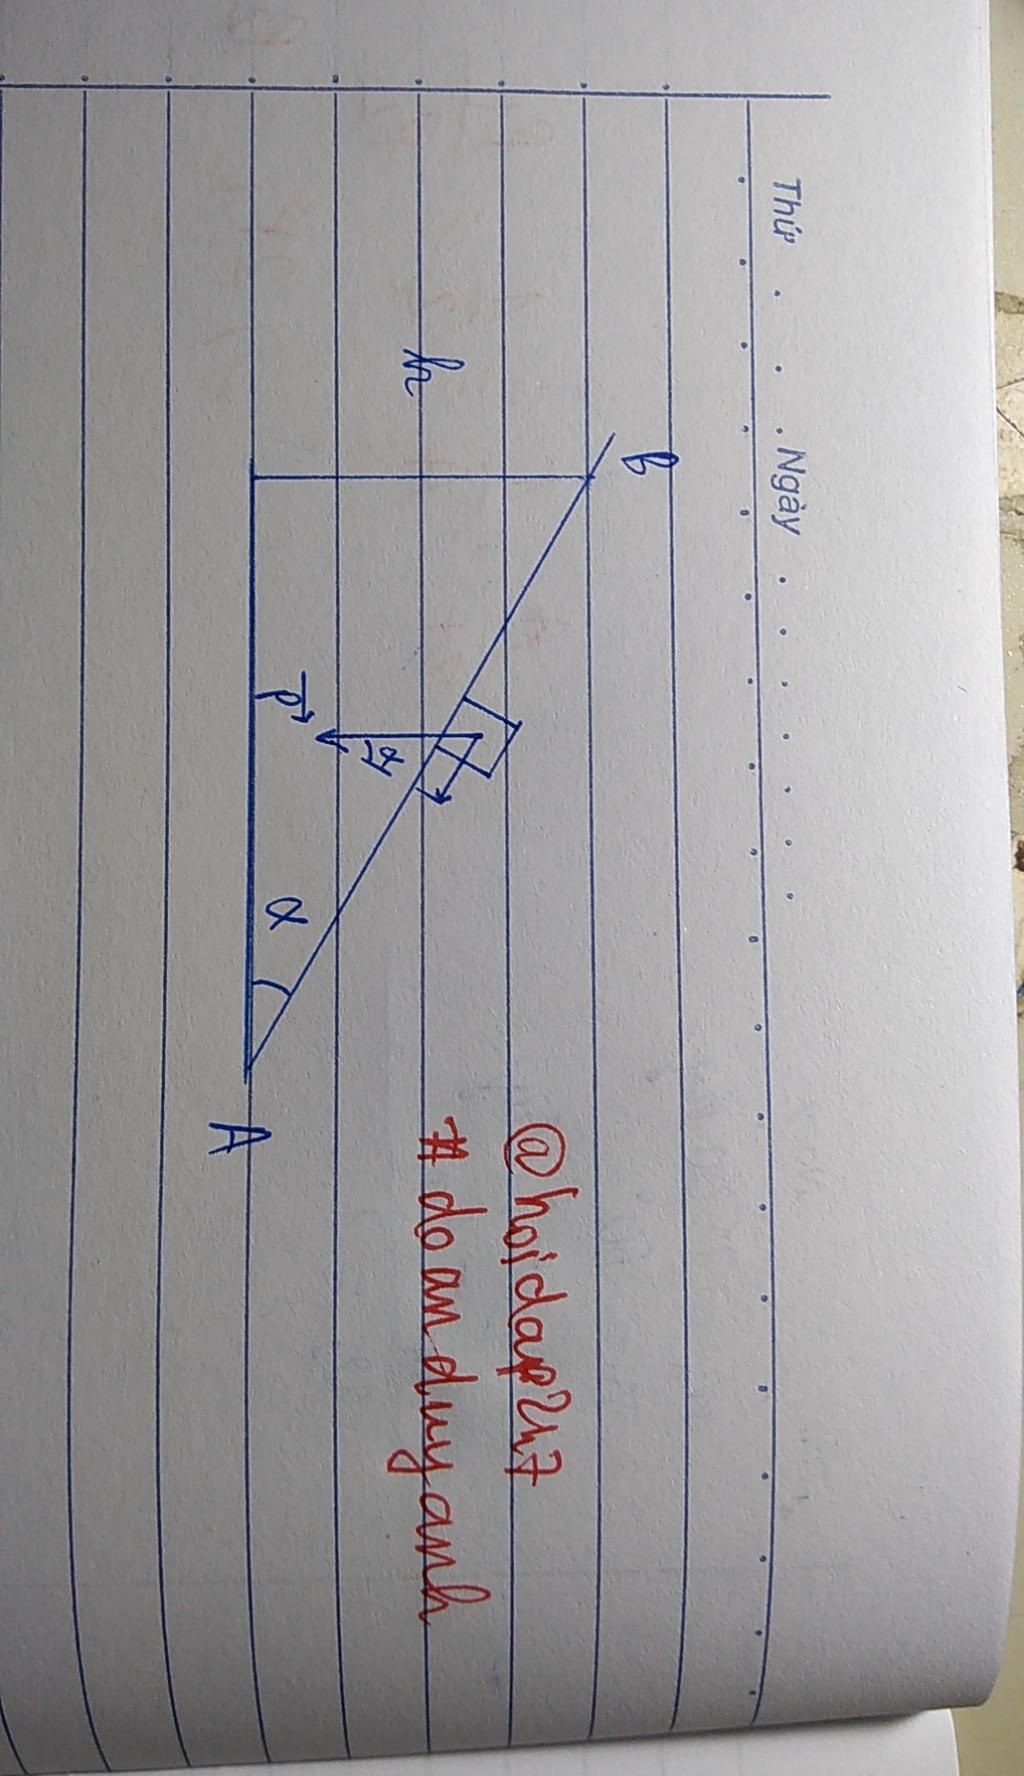 Thứ . . . . Ngày . . . . . . .
B
h
P
α
α
A
@hoidap247
#doanduyanh